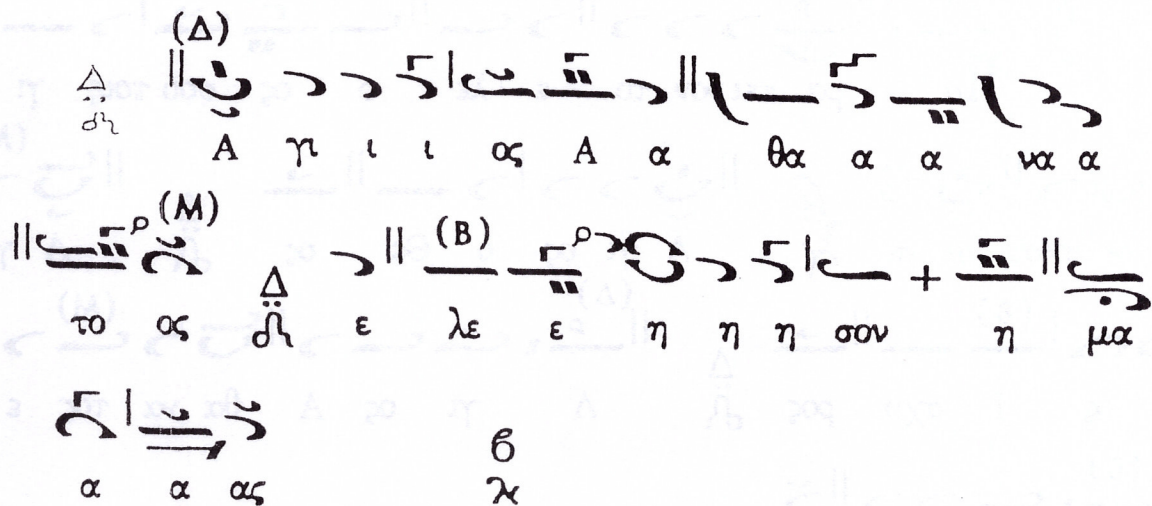 (Δ)
Δ
Α γι ι ι ος Α α θα α α να α
(Μ) (Β)
το ος Δ ε λε ε η η η σον η μα
α α ας